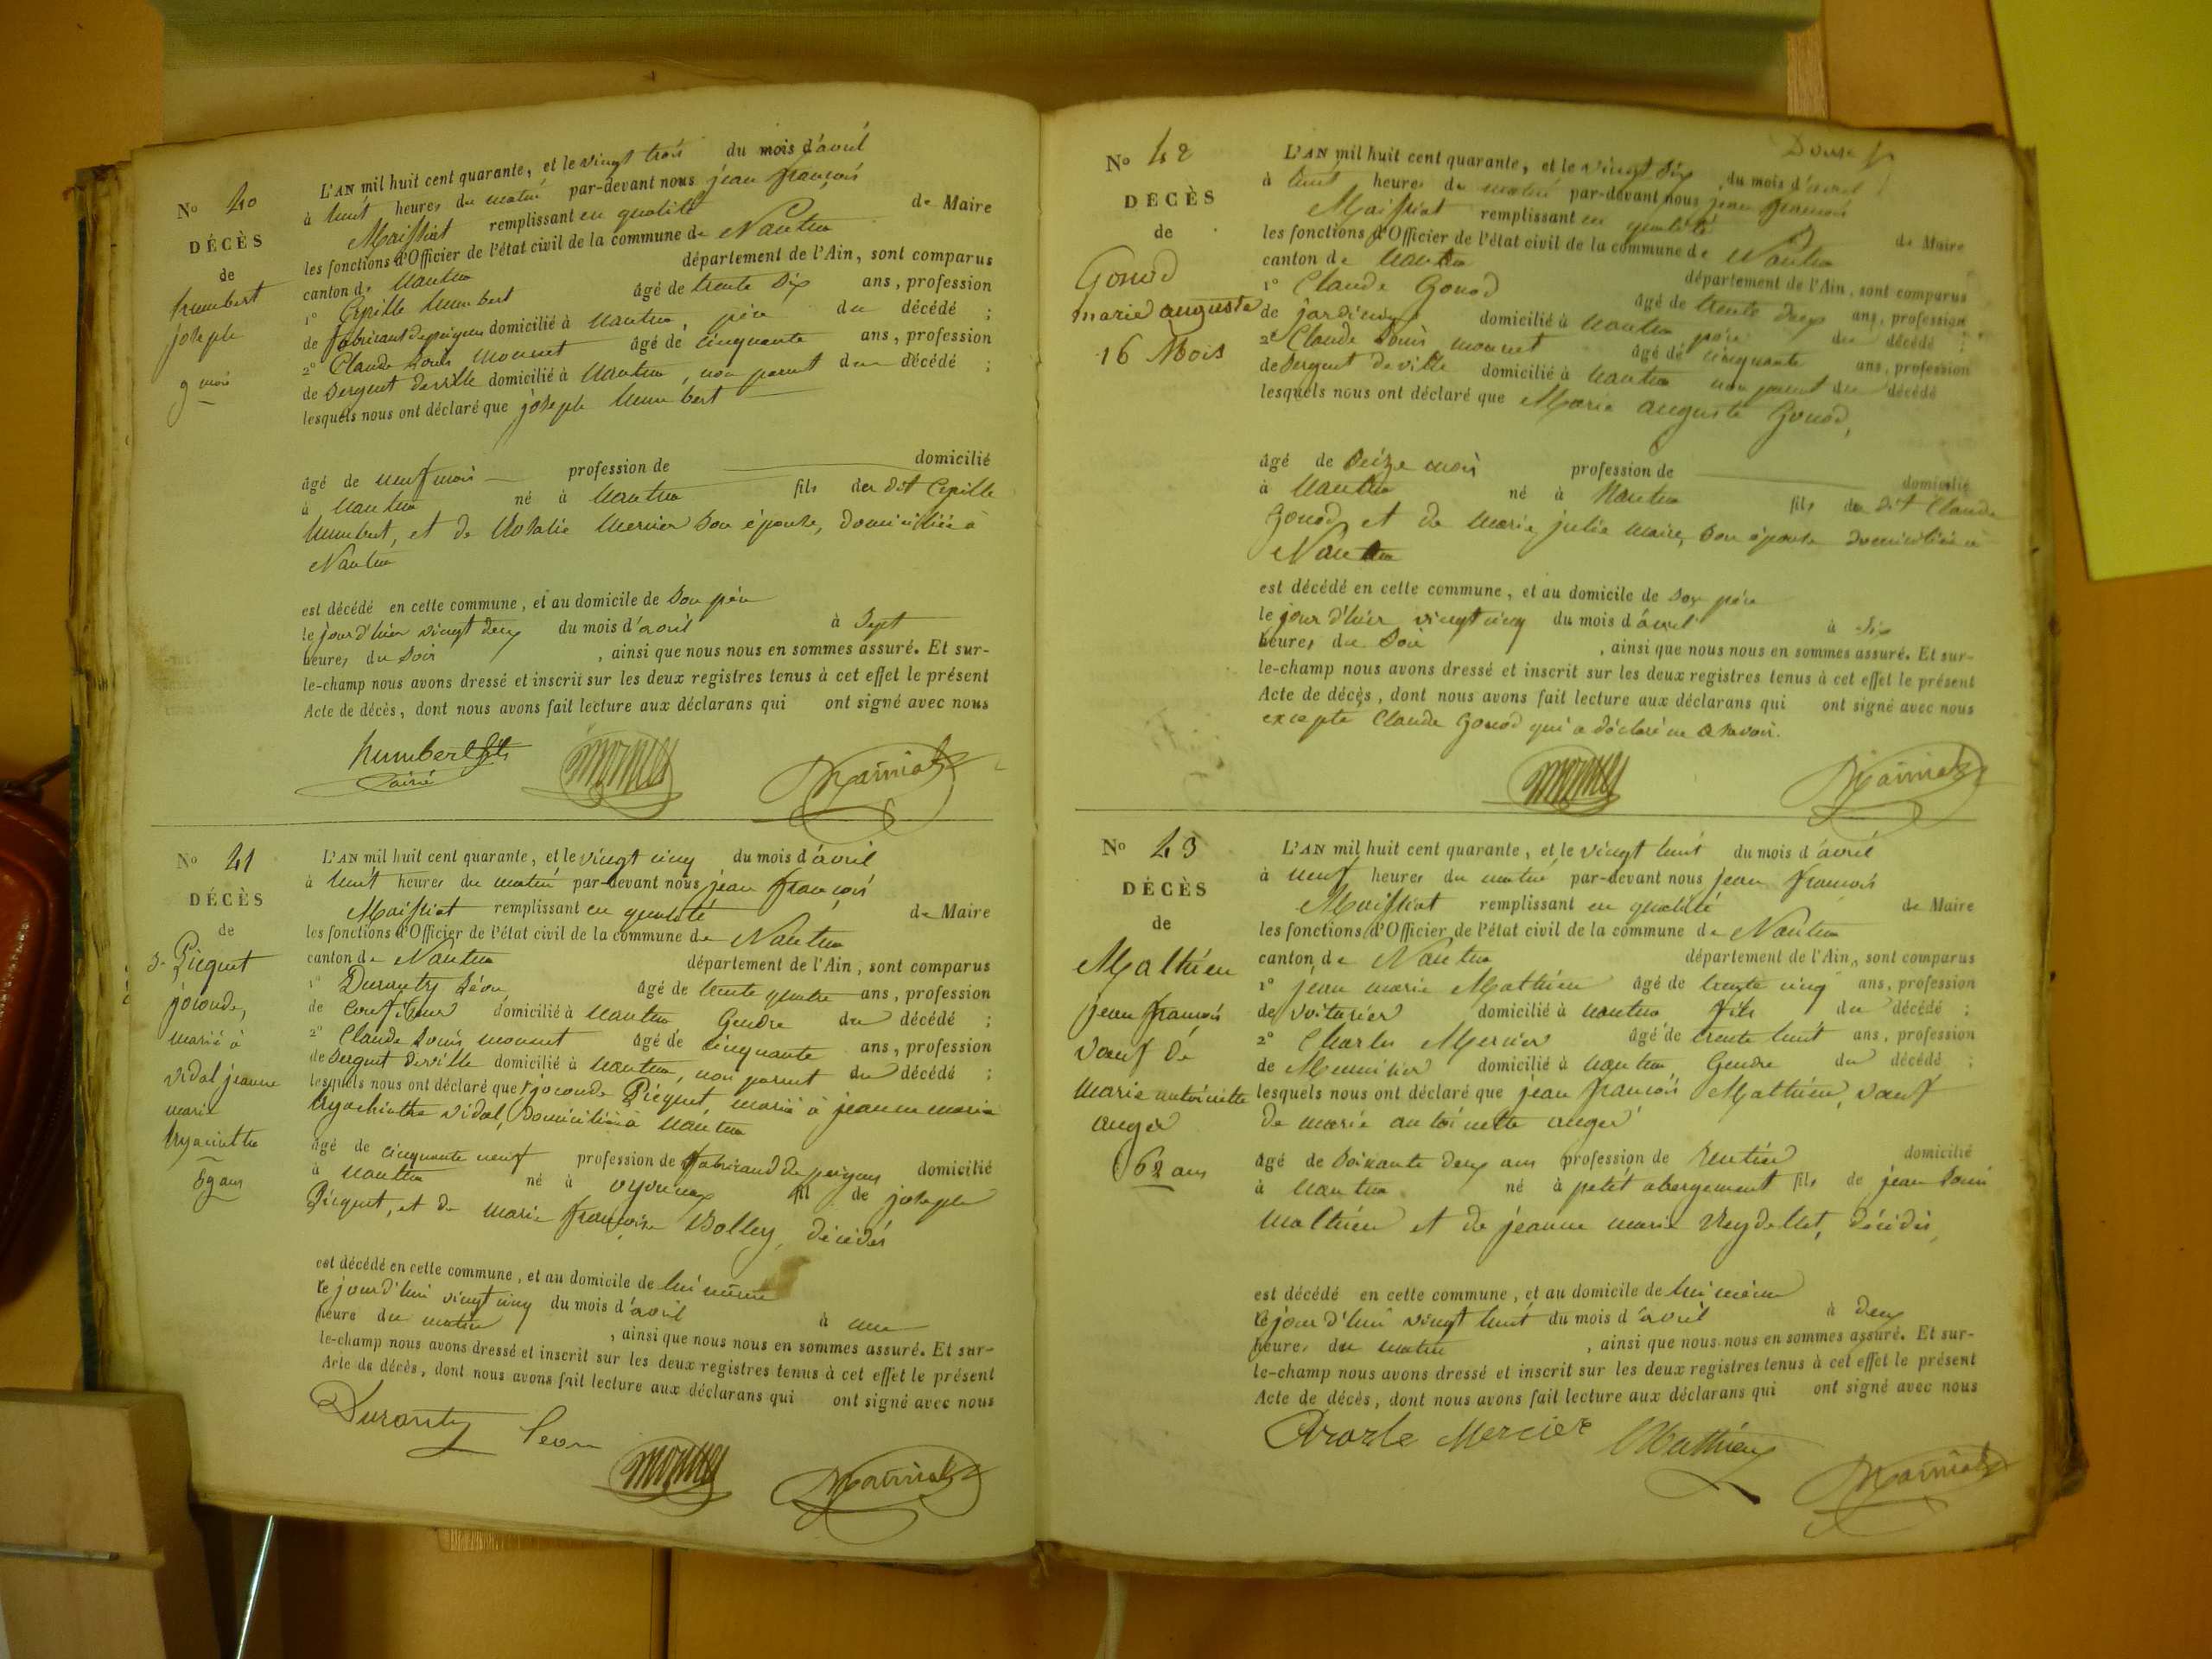 N° 40
DÉCÈS
de
humbert
joseph
9 mois
L'AN mil huit cent quarante, et le vingt trois du mois d'avril
à huit heures du matin par-devant nous jean françois
Maissiat remplissant en qualité de Maire
les fonctions d'Officier de l'état civil de la commune de Nantua
canton de Nantua département de l'Ain, sont comparus
1° humbert âgé de trente six ans, profession
de fabricant de peignes domicilié à Nantua, père du décédé ;
2° Claude Louis monnet âgé de cinquante ans, profession
de Sergent de ville domicilié à Nantua, non parent du décédé ;
lesquels nous ont déclaré que joseph humbert
âgé de neuf mois profession de domicilié
à Nantua né à Nantua fils du dit
humbert, et de Rosalie Mercier son épouse, domiciliés à
Nantua
est décédé en cette commune, et au domicile de son père
le jour d'hier vingt deux du mois d'avril à sept
heures du soir, ainsi que nous nous en sommes assuré. Et sur-
le-champ nous avons dressé et inscrit sur les deux registres tenus à cet effet le présent
Acte de décès, dont nous avons fait lecture aux déclarans qui ont signé avec nous
humbert fils
ainé monnet Maissiat
N° 41
DÉCÈS
de
Picquet
joconde,
marié à
vidal jeanne
marie
hyacinthe
59 ans
L'AN mil huit cent quarante, et le vingt cinq du mois d'avril
à huit heures du matin par-devant nous jean françois
Maissiat remplissant en qualité de Maire
les fonctions d'Officier de l'état civil de la commune de Nantua
canton de Nantua département de l'Ain, sont comparus
1° Duranty Léon âgé de trente quatre ans, profession
de confiseur domicilié à Nantua Gendre du décédé ;
2° Claude Louis monnet âgé de cinquante ans, profession
de Sergent de ville domicilié à Nantua, non parent du décédé ;
lesquels nous ont déclaré que joconde Picquet, marié à jeanne marie
hyachinthe vidal, domicilié à Nantua
âgé de cinquante neuf profession de fabricand de peignes domicilié
à Nantua né à oyonnax fil de joseph
Picquet, et de marie françoise Bolley, décédés
est décédé en cette commune, et au domicile de lui même
ce jourd'hui vingt cinq du mois d'avril à une
heure du matin, ainsi que nous nous en sommes assuré. Et sur-
le-champ nous avons dressé et inscrit sur les deux registres tenus à cet effet le présent
Acte de décès, dont nous avons fait lecture aux déclarans qui ont signé avec nous
Duranty Leon monnet Maissiat
N° 42
DÉCÈS
de
Gonod
marie auguste
16 Mois
L'AN mil huit cent quarante, et le vingt six du mois d'avril
à huit heures du matin par-devant nous jean françois
Maissiat remplissant en qualité de Maire
les fonctions d'Officier de l'état civil de la commune de Nantua
canton de Nantua département de l'Ain, sont comparus
1° Claude Gonod âgé de trente deux ans, profession
de jardinier domicilié à Nantua père du décédé ;
2° Claude Louis monnet âgé de cinquante ans, profession
de Sergent de ville domicilié à Nantua non parent du décédé
lesquels nous ont déclaré que Marie auguste Gonod,
âgé de Seize mois profession de domicilié
à Nantua né à Nantua fils du dit Claude
Gonod et de marie julie maire, son épouse domiciliés à
Nantua
est décédé en cette commune, et au domicile de son père
le jour d'hier vingt cinq du mois d'avril à six
heures du soir, ainsi que nous nous en sommes assuré. Et sur-
le-champ nous avons dressé et inscrit sur les deux registres tenus à cet effet le présent
Acte de décès, dont nous avons fait lecture aux déclarans qui ont signé avec nous
excepté Claude Gonod qui a déclaré ne savoir.
monnet Maissiat
N° 43
DÉCÈS
de
Mathieu
jean françois
veuf de
marie antoinette
anger
62 ans
L'AN mil huit cent quarante, et le vingt huit du mois d'avril
à neuf heures du matin par-devant nous jean françois
Maissiat remplissant en qualité de Maire
les fonctions d'Officier de l'état civil de la commune de Nantua
canton de Nantua département de l'Ain, sont comparus
1° jean marie Mathieu âgé de trente cinq ans, profession
de voiturier domicilié à Nantua fils du décédé ;
2° Charles Mercier âgé de trente huit ans, profession
de Menuisier domicilié à Nantua, Gendre du décédé ;
lesquels nous ont déclaré que jean françois Mathieu, veuf
de marie antoinette anger
âgé de Soixante deux ans profession de Rentier domicilié
à Nantua né à petit abergement fils de jean Louis
mathieu et de jeanne marie Reydellet, décédés,
est décédé en cette commune, et au domicile de lui même
ce jour d'hui vingt huit du mois d'avril à deux
heures du matin, ainsi que nous nous en sommes assuré. Et sur-
le-champ nous avons dressé et inscrit sur les deux registres tenus à cet effet le présent
Acte de décès, dont nous avons fait lecture aux déclarans qui ont signé avec nous
Mercier Mathieu Maissiat